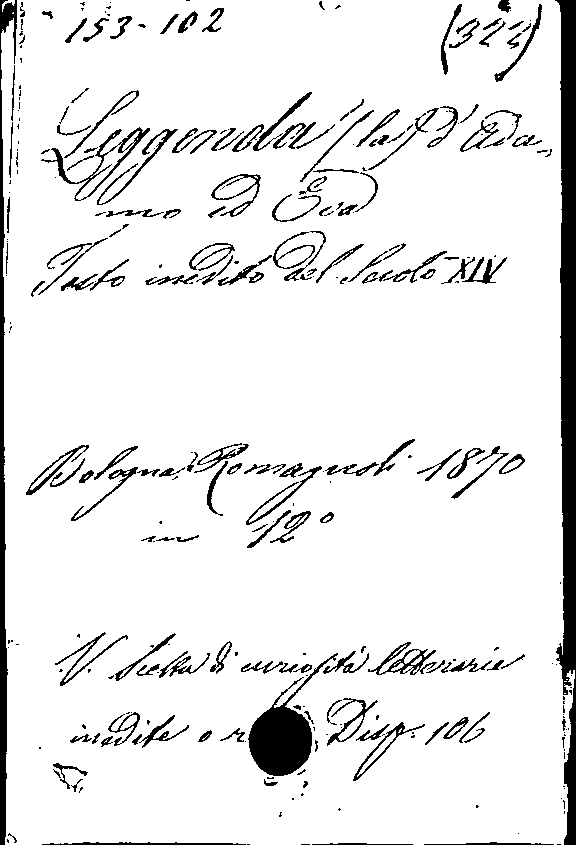 153-102 (322)
Leggenda (la) d'Ada-
mo ed Eva
Testo inedito del Secolo XIV
Bologna, Romagnoli 1870
in 12°
V. Scelta di curiosità letterarie
inedite o r Disp. 106